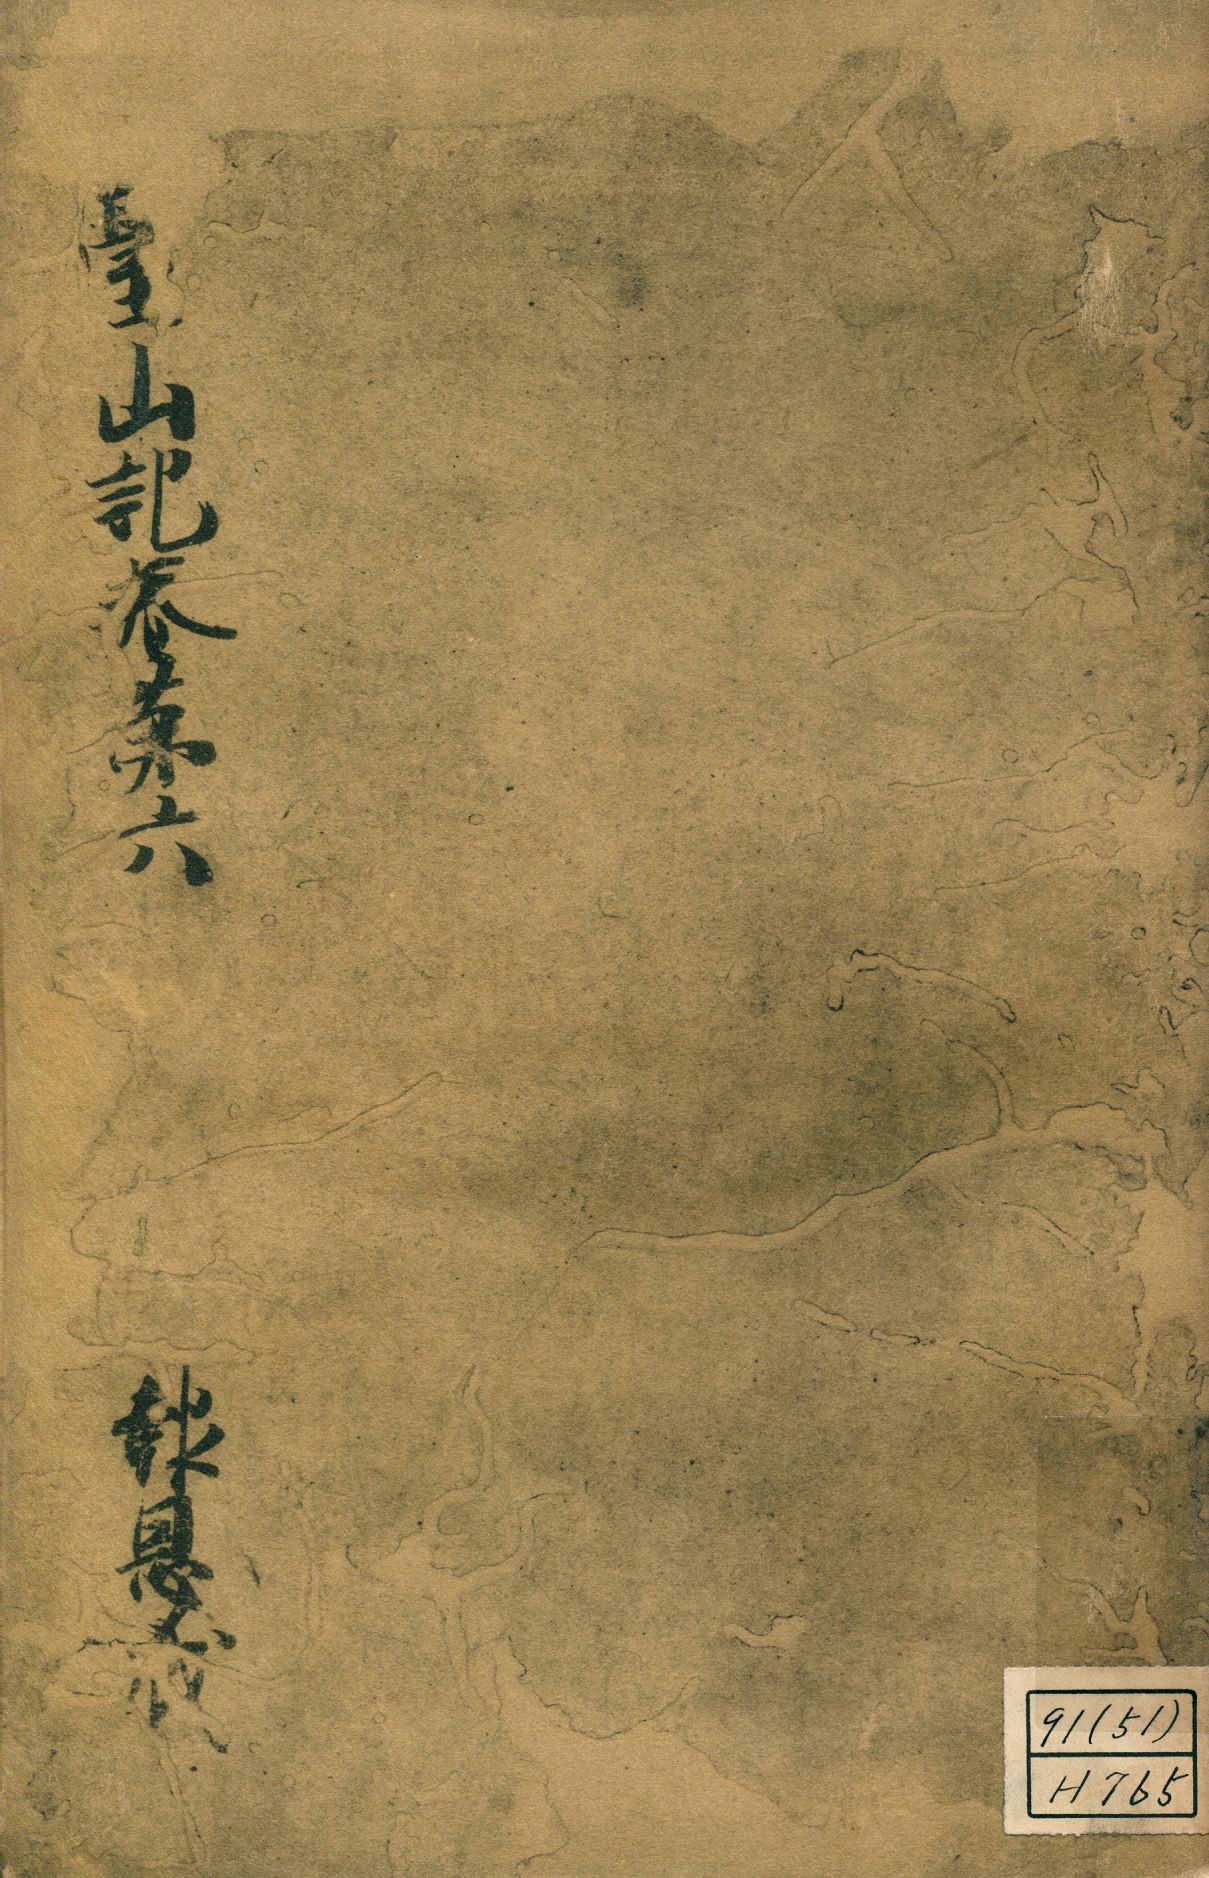 臺山記卷第六
報恩
91(51)
H765